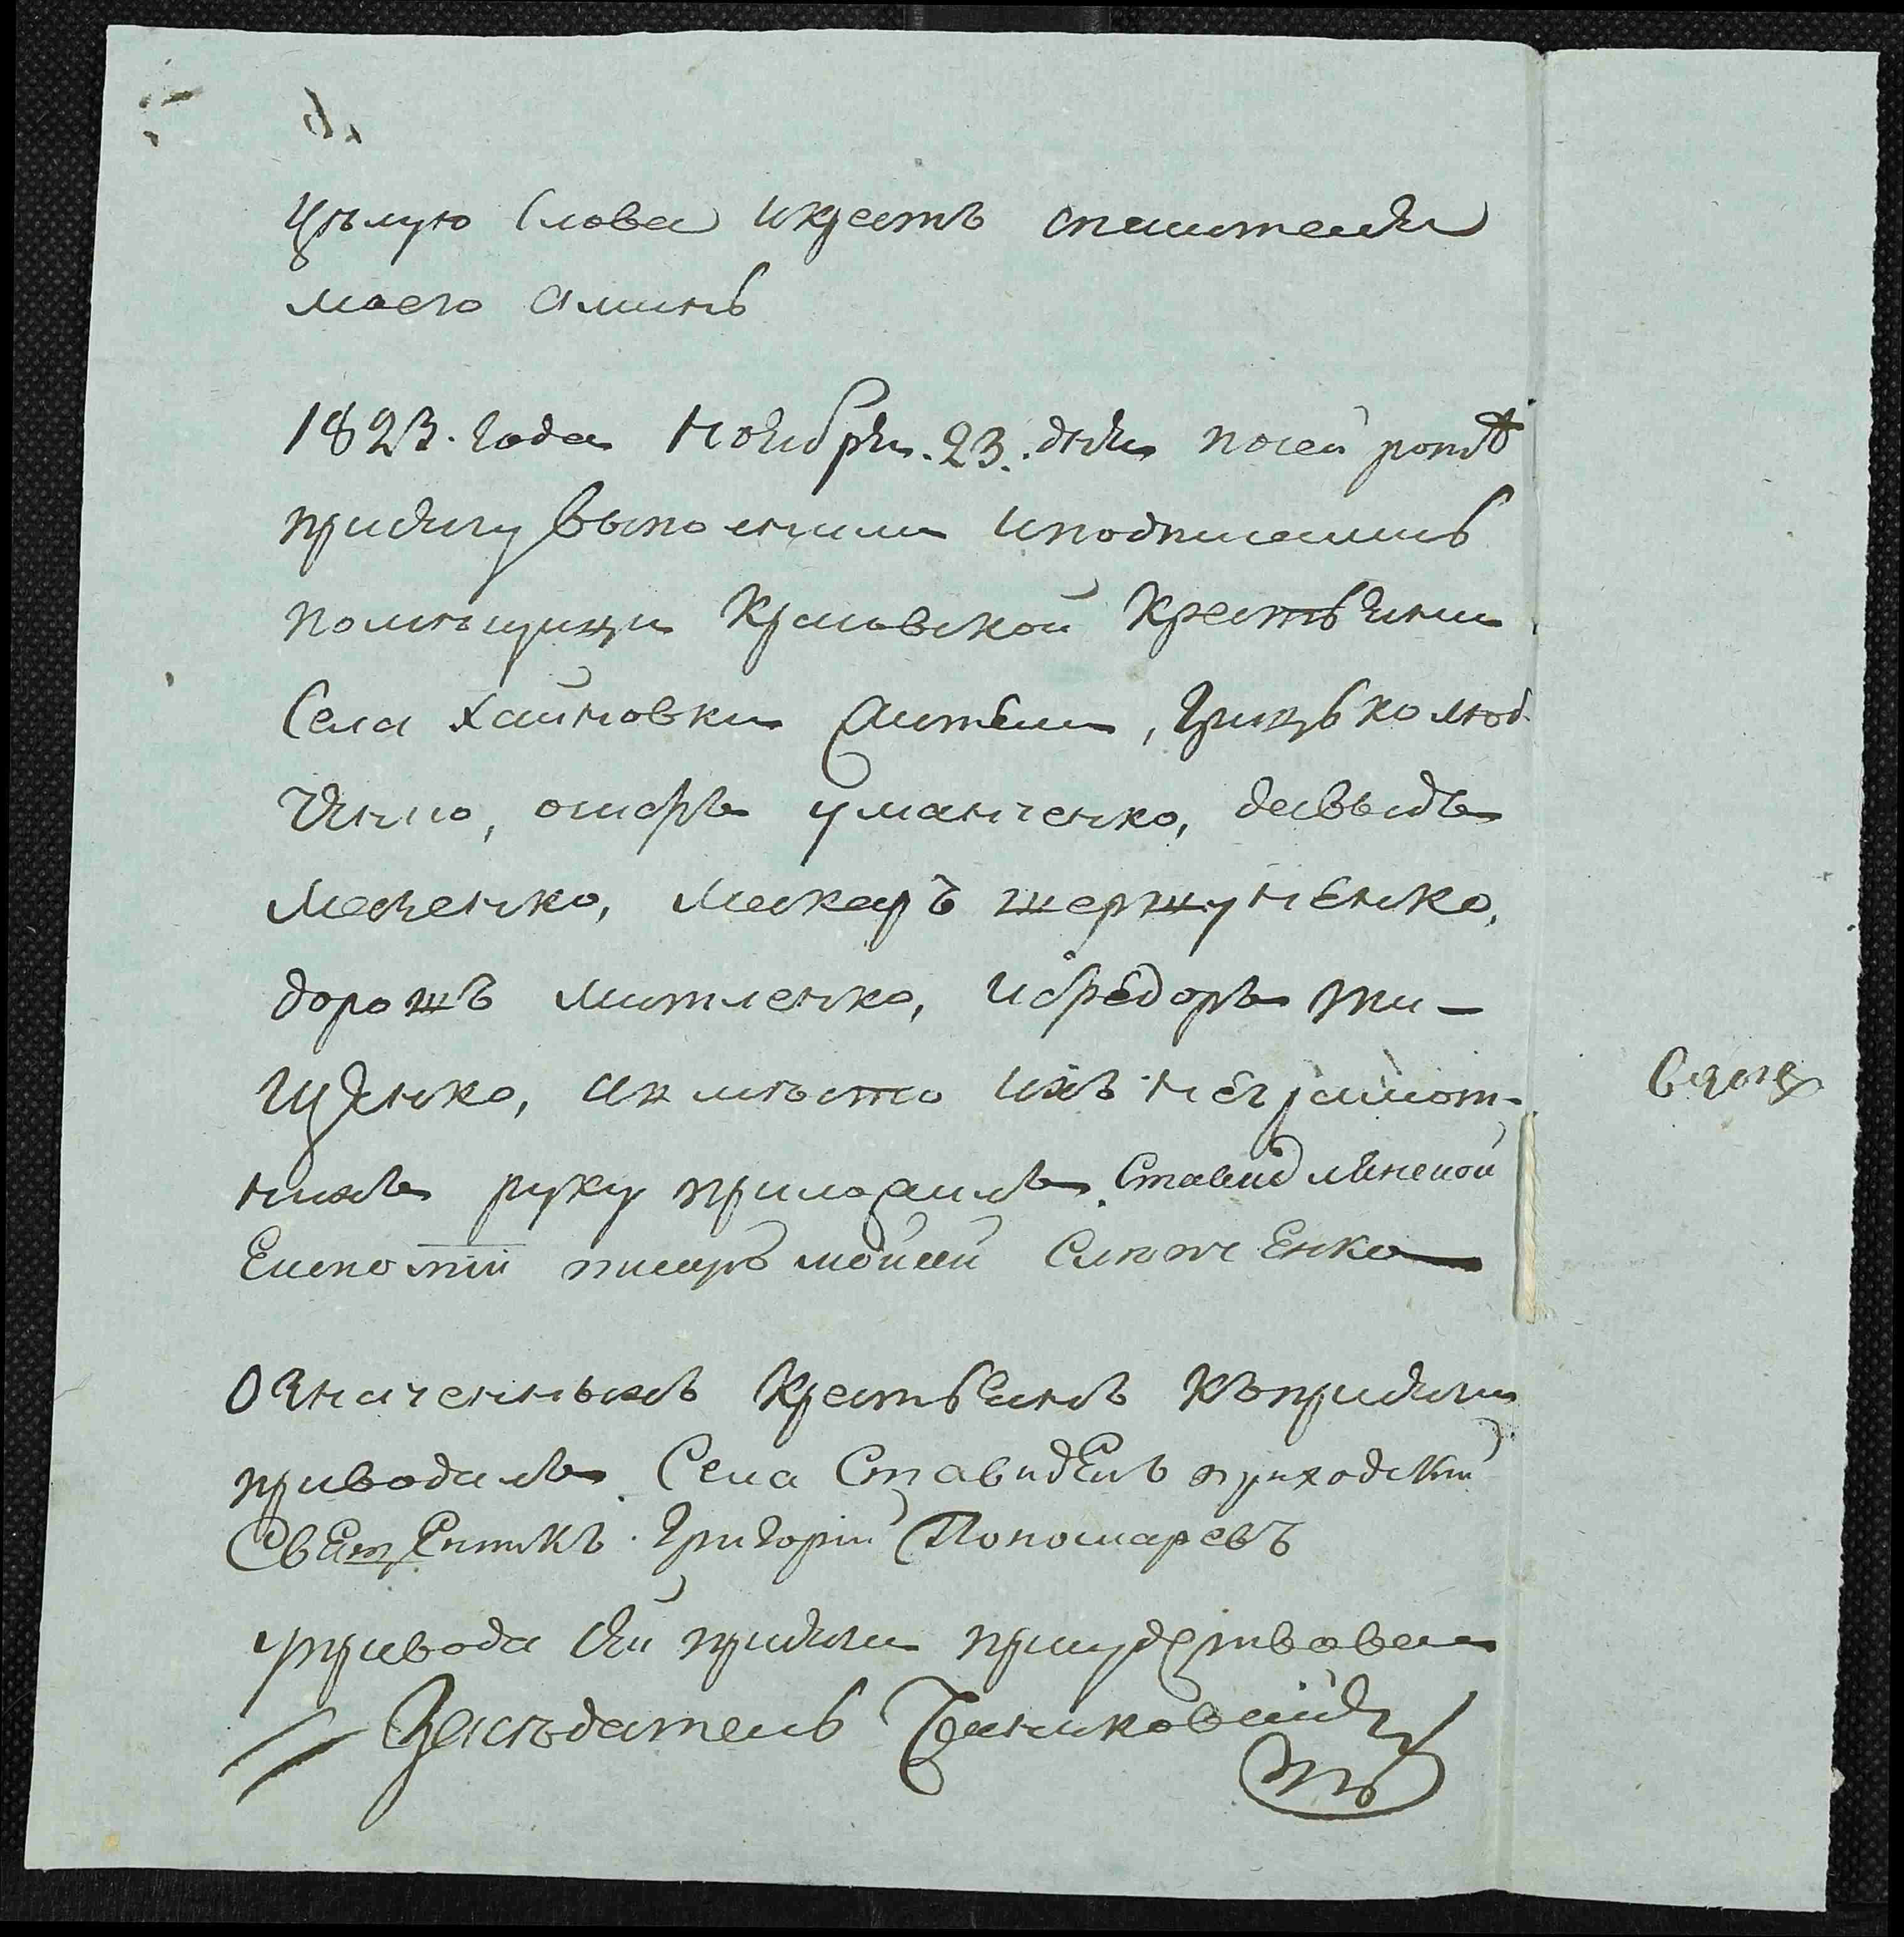 цѣлую слова икрестъ спасителя
моего аминь
1823. года ноября. 23. дня посей ротѣ
присягу выполнили иподписались
помѣщици крыловской крестьяни
села хайновки антыпъ, грицько люб
ченко, онофръ уманченко, давыдъ
маченко, макаръ шершуненко,
дорошъ литменко, ифедоръ ти-
щенко, авмѣсто ихъ неграмот-
нихъ руку приложилъ Ставидлянской
Економіи писаръ
означенныхъ крестьянъ къприсяги
приводилъ Села Ставиделъ приходский
Священникъ Григорий Пономаревъ
упривода сей присяги присудствовалъ
Засѣдатель